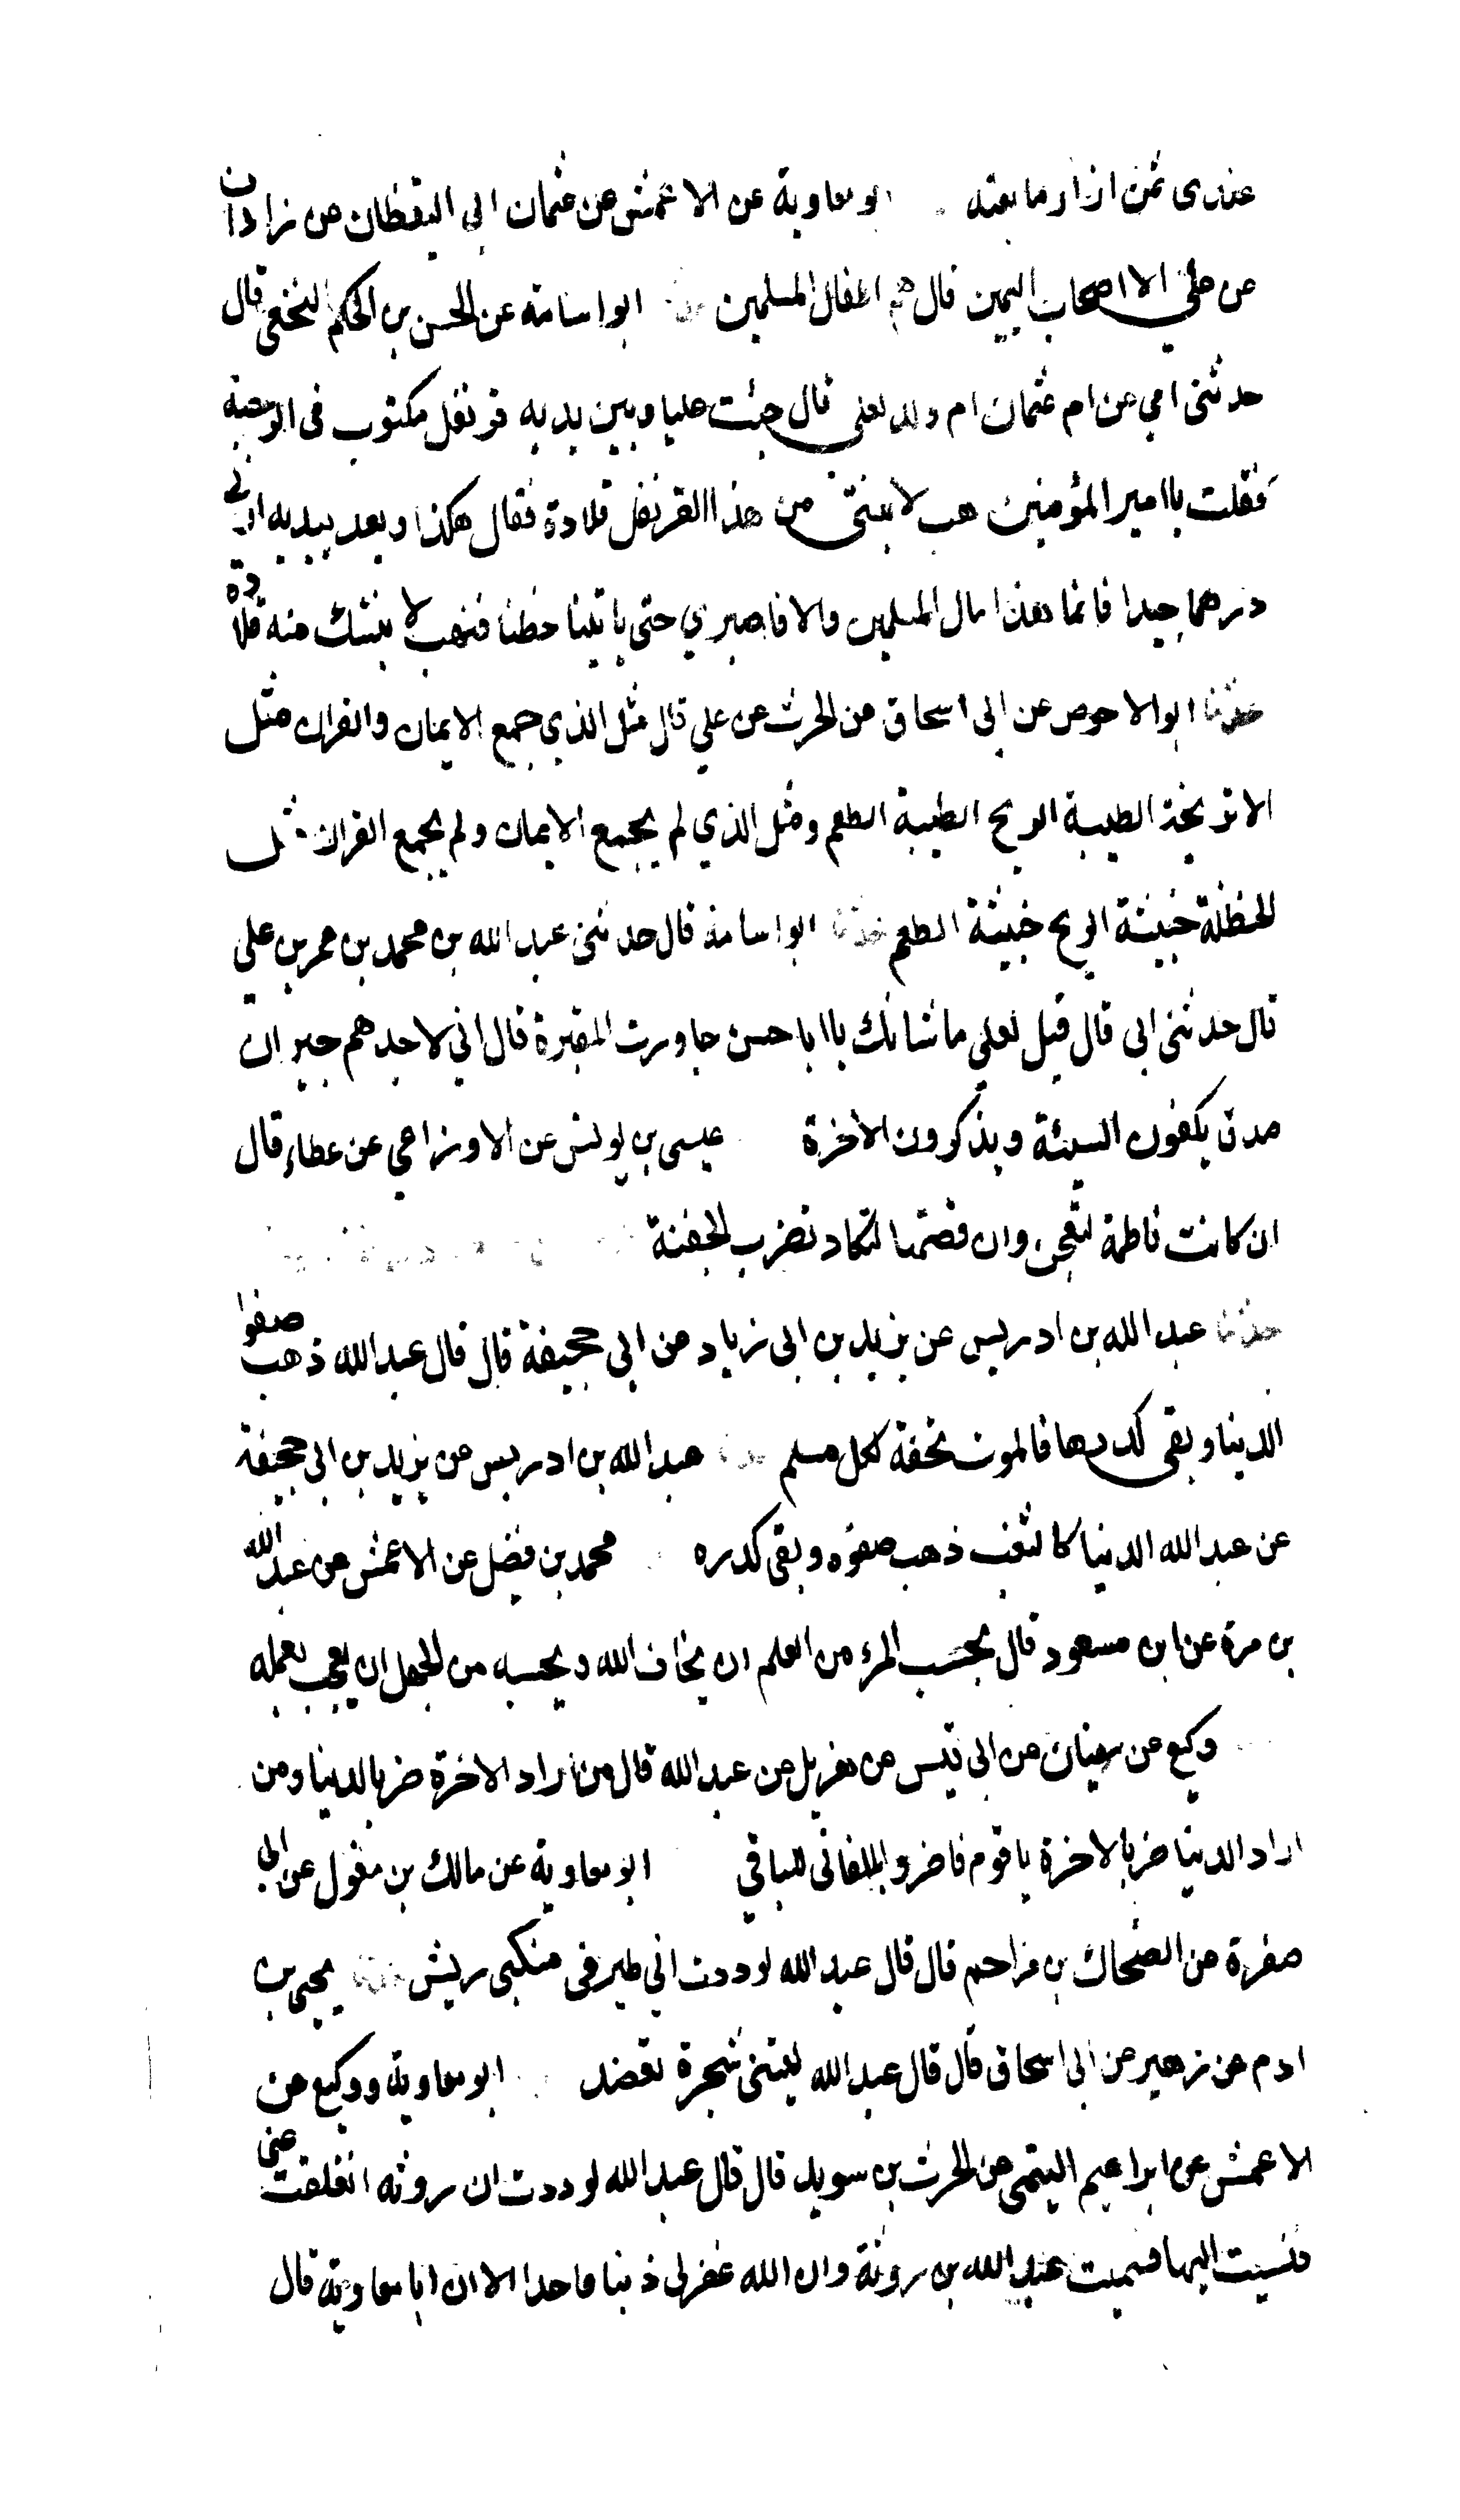 عندى ثمن ازار ما بعته ابو معاوية عن الاعمش عن عثمان ابى اليقظان عن زاذان
عن على الا اصحاب اليمين قال هم اطفال المسلمين حدثنا ابو اسامة عن الحسن بن الحكم النخعى قال
حدثنى امي عن ام عثمان ام ولد لعلى قال جئت عليا وبين يديه قرنفل مكتوب فى الرحبة
فقلت يا امير المؤمنين هب لابنتى من هذا القرنفل قلادة فقال هكذا ونقد بيديه ارنى
درهما جيدا فانما هذا مال المسلمين والا فاصبري حتى ياتينا حظنا فنهب لابنتك منه قلادة
حدثنا ابو الاحوص عن ابى اسحاق عن الحرث عن علي قال مثل الذي جمع الايمان والقران مثل
الاترنجة الطيبة الريح الطيبة الطعم ومثل الذي لم يجمع الايمان ولم يجمع القران مثل
الحنظلة خبيثة الريح خبيثة الطعم حدثنا ابو اسامة قال حدثنى عبد الله بن محمد بن عمر بن علي
قال حدثنى ابى قال قيل لعلى ما شانك يا ابا حسن جاورت المقبرة قال انى لاجدهم جيران
صدق يكفون السيئة ويذكرون الاخرة عيسى بن يونس عن الاوزاعي عن عطاء قال
ان كانت فاطمة لتعجن وان قصتها لتكاد تضرب الجفنة
حدثنا عبد الله بن ادريس عن يزيد بن ابى زياد عن ابى جحيفة قال قال عبد الله ذهب صفوا
الدنيا وبقى كدرها فالموت تحفة لكل مسلم حدثنا عبد الله بن ادريس عن يزيد بن ابى جحيفة
عن عبد الله الدنيا كالثغب ذهب صفوه وبقى كدره محمد بن فضل عن الاعمش عن عبد الله
بن مرة عن ابن مسعود قال بحسب المرء من العلم ان يخاف الله وبحسبه من الجهل ان يعجب بعمله
وكيع عن سفيان عن ابى قيس عن هزيل عن عبد الله قال من اراد الاخرة ضر بالدنيا ومن
اراد الدنيا ضر بالاخرة يا قوم فاضروا بالفانى للباقي ابو معاوية عن مالك بن مغول عن ابى
صفرة عن الضحاك بن مزاحم قال قال عبد الله لوددت انى طير فى منكبى ريش حدثنا يحيى بن
ادم عن زهير عن ابى اسحاق قال قال عبد الله ليتنى شجرة تعضد ابو معاوية ووكيع عن
الاعمش عن ابراهيم التيمى عن الحرث بن سويد قال قال عبد الله لوددت ان روثه انفلقت عنى
فنسبت اليها فسميت عبد الله بن روثة وان الله غفر لى ذنبا واحدا الا ان ابا معاوية قال